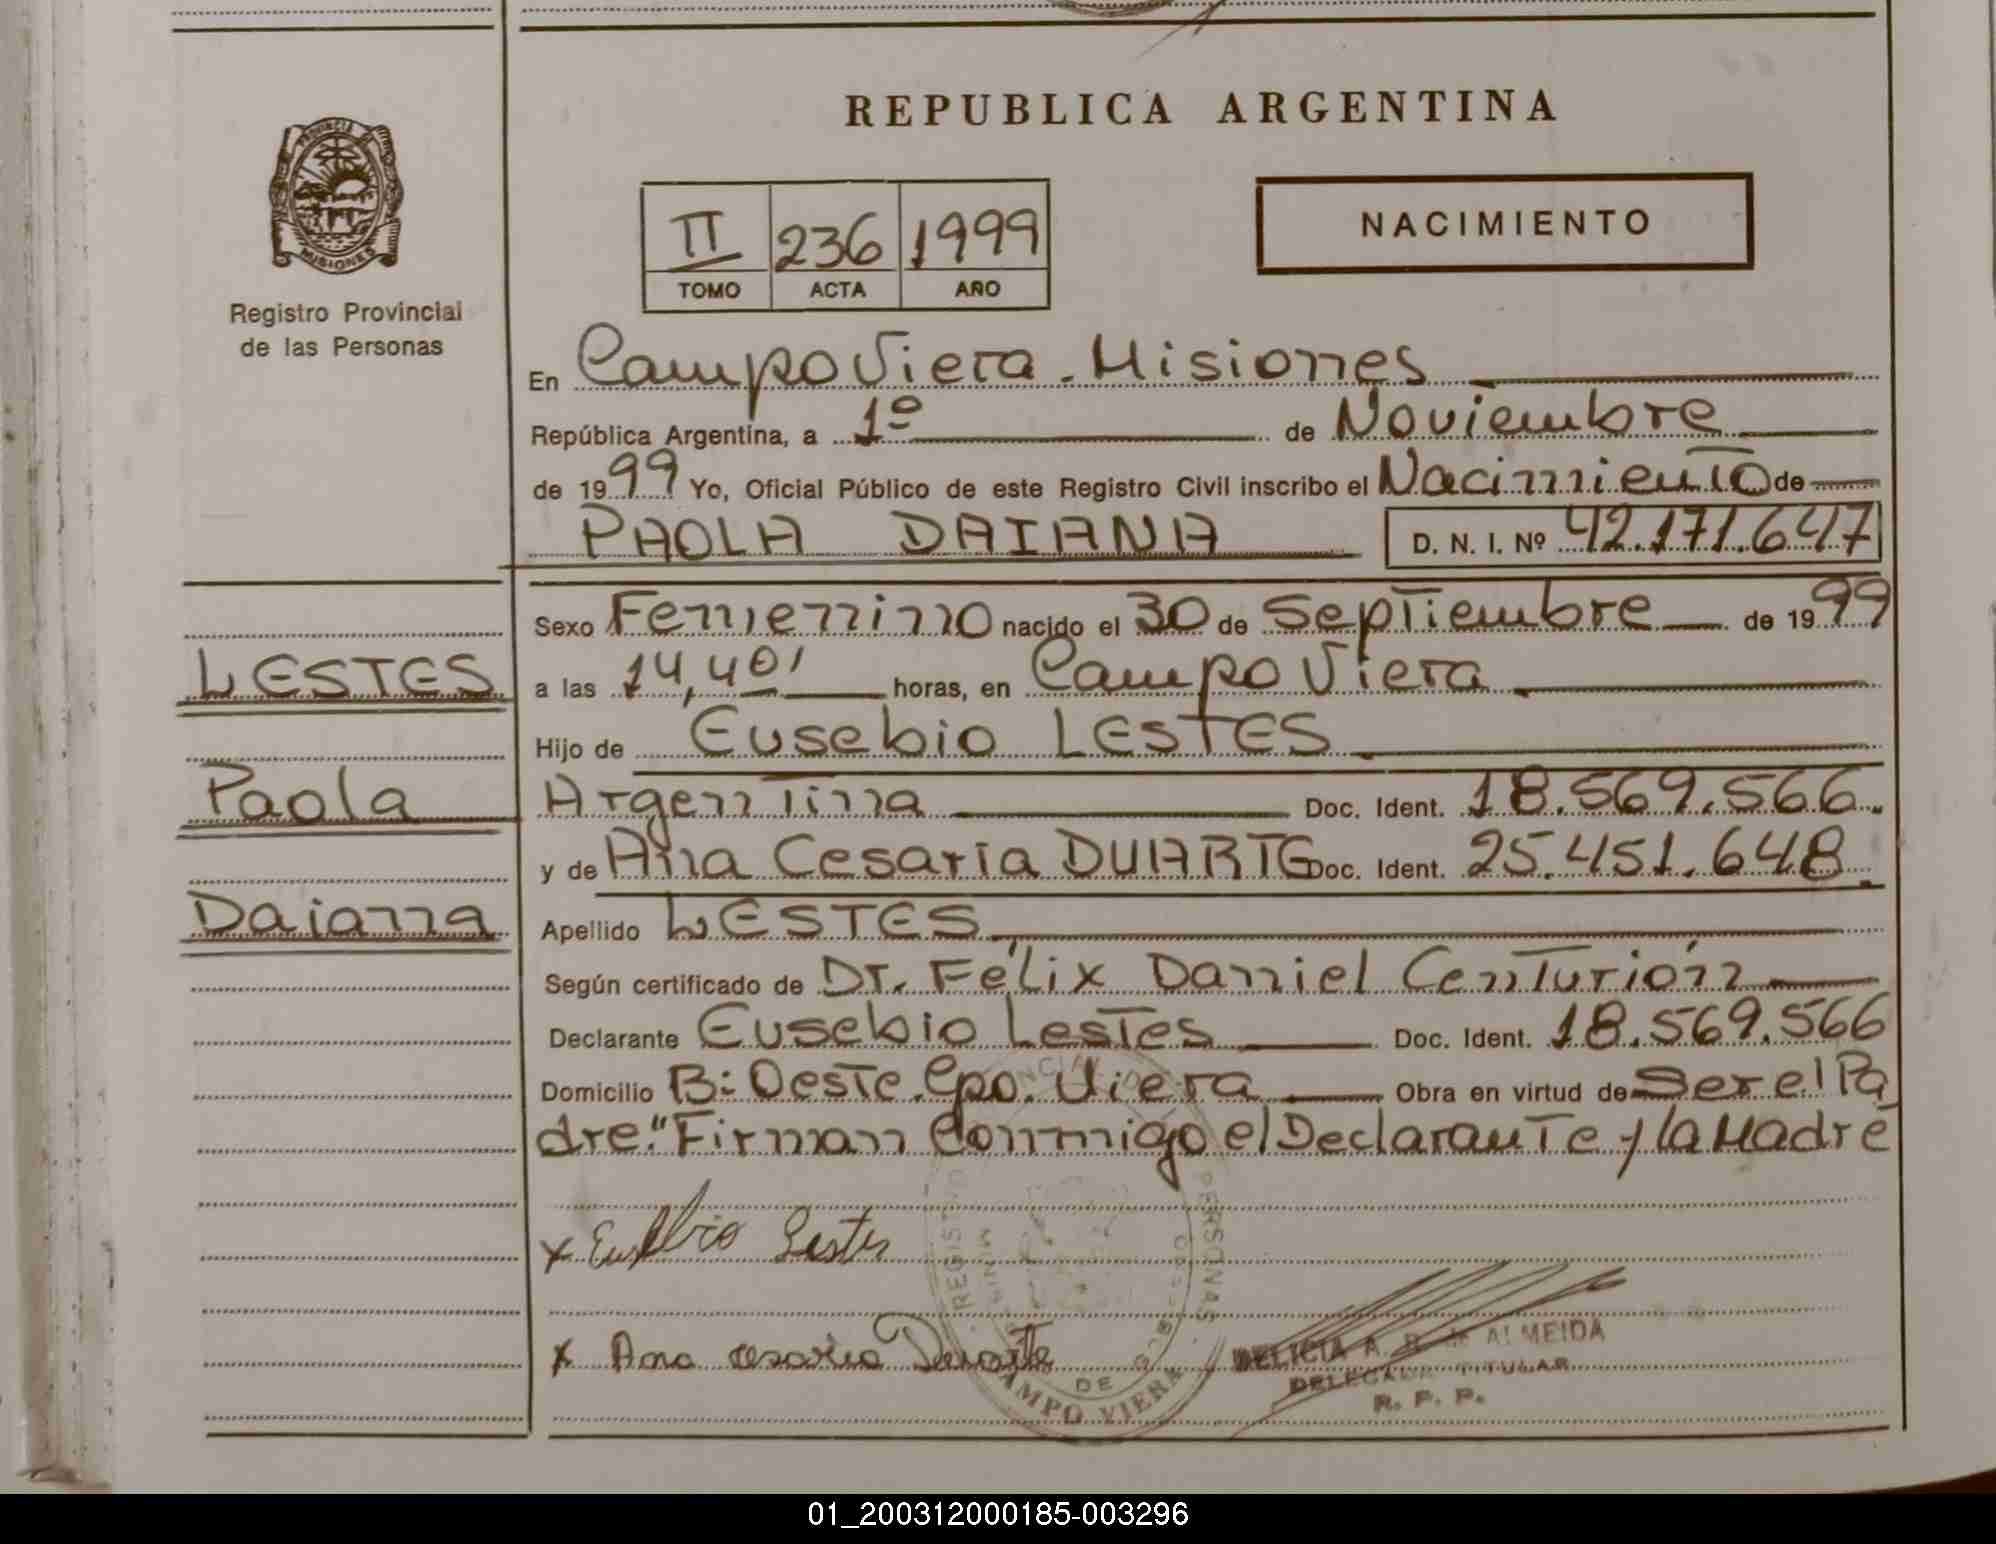 REPUBLICA ARGENTINA
PROVINCIA DE
MISIONES
Registro Provincial
de las Personas
NACIMIENTO
II 236 1999
TOMO ACTA AÑO
En Campo Viera - Misiones
República Argentina, a 1º de Noviembre
de 1999 Yo, Oficial Público de este Registro Civil inscribo el Nacimiento de
PAOLA DAIANA D. N. I. Nº 42.171.647
Sexo Femenino nacido el 30 de Septiembre de 1999
LESTES
a las 14,40' horas, en Campo Viera
Hijo de Eusebio LESTES
Paola
Argentina Doc. Ident. 18.569.566.
y de Ana Cesaria DUARTE Doc. Ident. 25.451.648.
Daiana
Apellido LESTES
Según certificado de Dr. Félix Daniel Centurión
Declarante Eusebio Lestes Doc. Ident. 18.569.566
Domicilio B: Oeste. Cpo. Viera Obra en virtud de Ser el Pa
dre." Firman Conmigo el Declarante y la Madre
x Eusebio Lestes
x Ana Duarte
REGISTRO PERSONAS
DE
CAMPO VIERA
DELICIA A. R. de ALMEIDA
DELEGADA TITULAR
R. P. P.
01_200312000185-003296